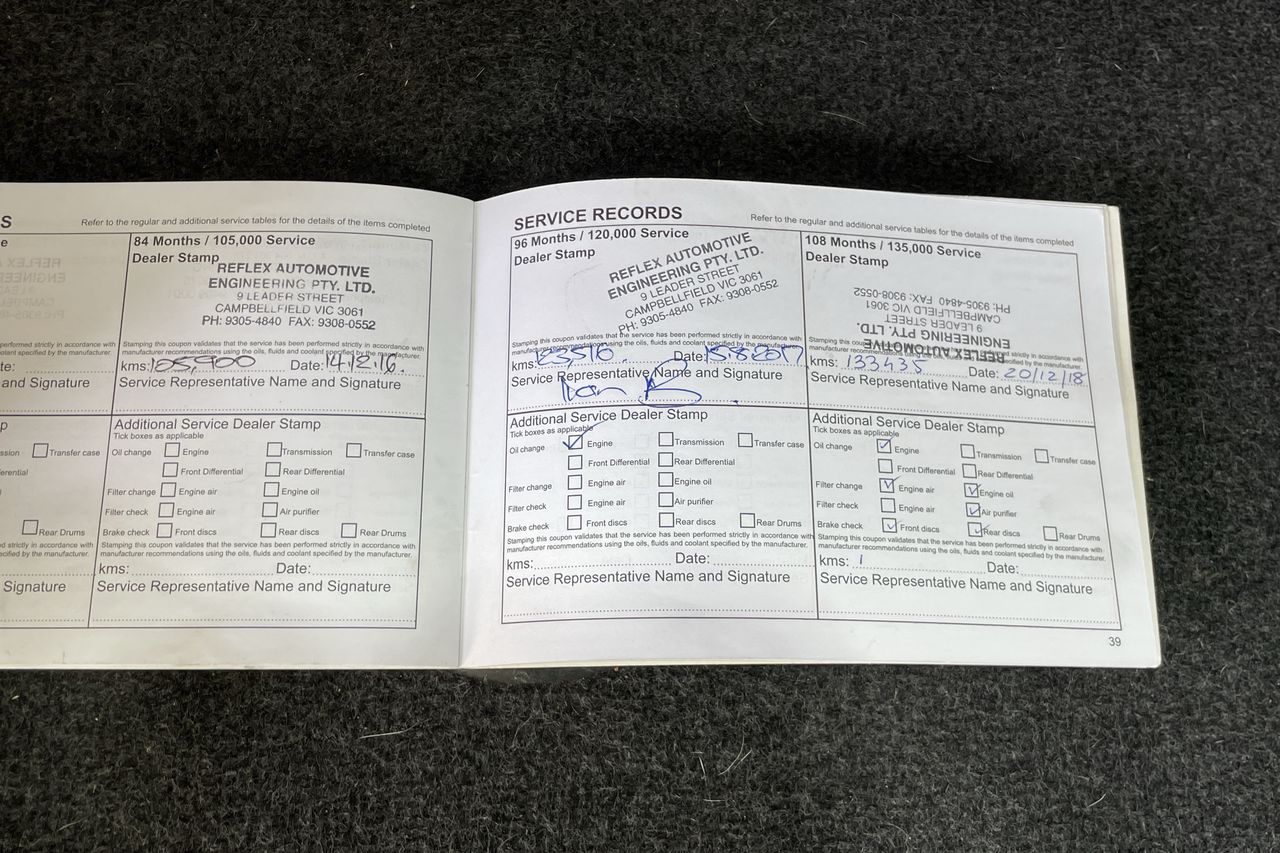 S
Refer to the regular and additional service tables for the details of the items completed
84 Months / 105,000 Service
Dealer Stamp
REFLEX AUTOMOTIVE
ENGINEERING PTY. LTD.
9 LEADER STREET
CAMPBELLFIELD VIC 3061
PH: 9305-4840 FAX: 9308-0552
Stamping this coupon validates that the service has been performed strictly in accordance with
manufacturer recommendations using the oils, fluids and coolant specified by the manufacturer.
kms: 105,900 Date: 14/12/16.
Service Representative Name and Signature
Additional Service Dealer Stamp
Tick boxes as applicable
Oil change Engine Transmission Transfer case
Front Differential Rear Differential
Filter change Engine air Engine oil
Filter check Engine air Air purifier
Brake check Front discs Rear discs Rear Drums
Stamping this coupon validates that the service has been performed strictly in accordance with
manufacturer recommendations using the oils, fluids and coolant specified by the manufacturer.
kms: Date:
Service Representative Name and Signature
performed strictly in accordance with
coolant specified by the manufacturer.
te:
and Signature
Transfer case
Rear Drums
d strictly in accordance with
cified by the manufacturer.
Signature
SERVICE RECORDS
Refer to the regular and additional service tables for the details of the items completed
96 Months / 120,000 Service
Dealer Stamp
REFLEX AUTOMOTIVE
ENGINEERING PTY. LTD.
9 LEADER STREET
CAMPBELLFIELD VIC 3061
PH: 9305-4840 FAX: 9308-0552
Stamping this coupon validates that the service has been performed strictly in accordance with
manufacturer recommendations using the oils, fluids and coolant specified by the manufacturer.
kms: Date: 15.8.2017
Service Representative Name and Signature
Additional Service Dealer Stamp
Tick boxes as applicable
Oil change Engine Transmission Transfer case
Front Differential Rear Differential
Filter change Engine air Engine oil
Filter check Engine air Air purifier
Brake check Front discs Rear discs Rear Drums
Stamping this coupon validates that the service has been performed strictly in accordance with
manufacturer recommendations using the oils, fluids and coolant specified by the manufacturer.
kms: Date:
Service Representative Name and Signature
108 Months / 135,000 Service
Dealer Stamp
REFLEX AUTOMOTIVE
ENGINEERING PTY. LTD.
9 LEADER STREET
CAMPBELLFIELD VIC 3061
PH: 9305-4840 FAX: 9308-0552
kms: 133435 Date: 20/12/18
Service Representative Name and Signature
Additional Service Dealer Stamp
Tick boxes as applicable
Oil change Engine Transmission Transfer case
Front Differential Rear Differential
Filter change Engine air Engine oil
Filter check Engine air Air purifier
Brake check Front discs Rear discs Rear Drums
Stamping this coupon validates that the service has been performed strictly in accordance with
manufacturer recommendations using the oils, fluids and coolant specified by the manufacturer.
kms: Date:
Service Representative Name and Signature
39